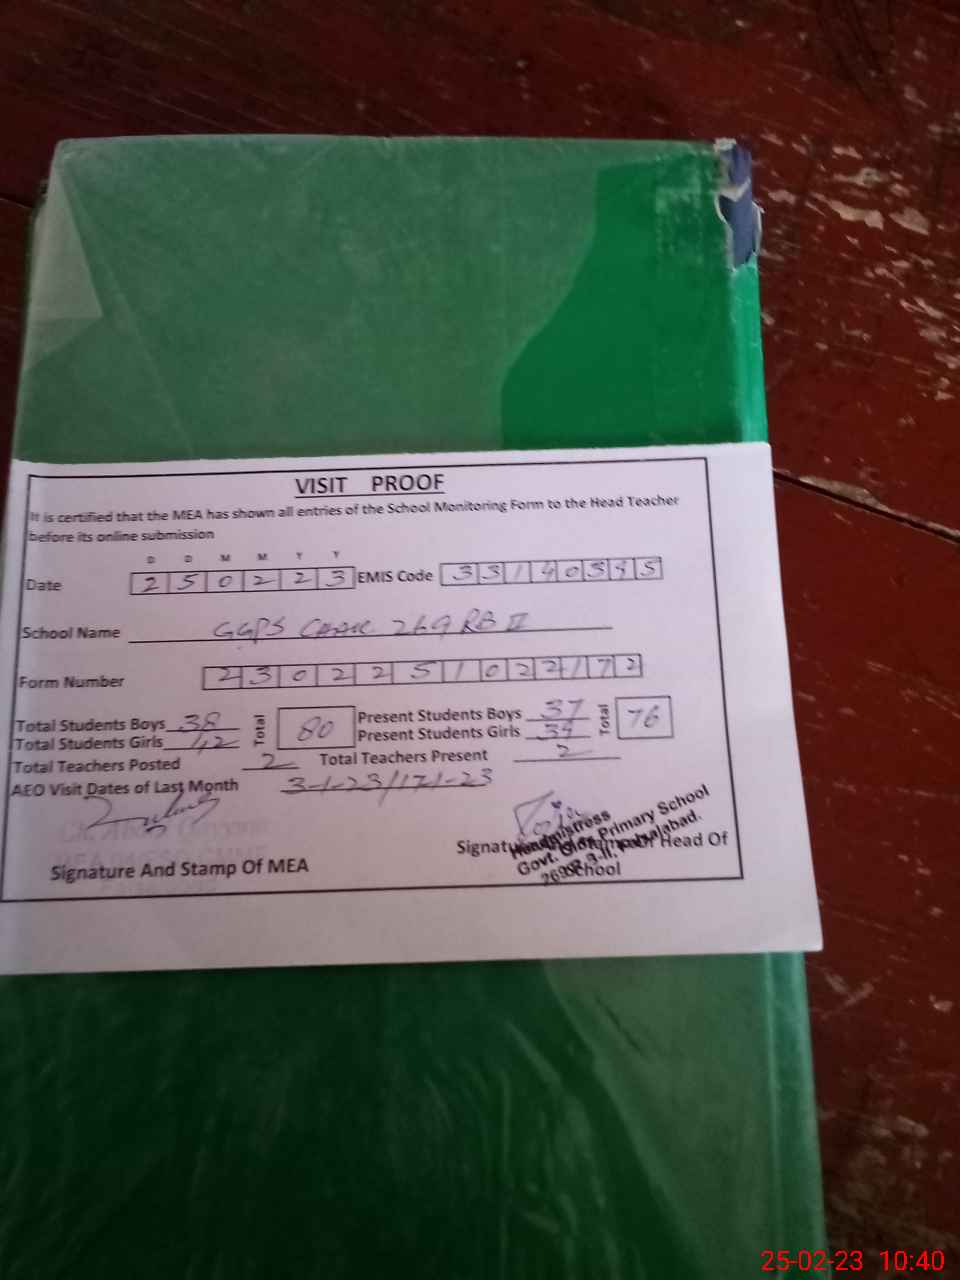 VISIT PROOF
It is certified that the MEA has shown all entries of the School Monitoring Form to the Head Teacher
before its online submission
D D M M Y Y
Date 2 5 0 2 2 3 EMIS Code 3 3 1 4 0 3 4 5
School Name GGPS Chak 269 RB II
Form Number 2 3 0 2 2 5 1 0 2 2 1 7 2
Total Students Boys 38 Total 80 Present Students Boys 37 Total 76
Total Students Girls 42 Present Students Girls 39
Total Teachers Posted 2 Total Teachers Present 2
AEO Visit Dates of Last Month 3-1-23/17-1-23
Signature And Stamp Of MEA
Signature And Stamp Of Head Of
School
Headmistress
Govt. Girls Primary School
25-02-23 10:40